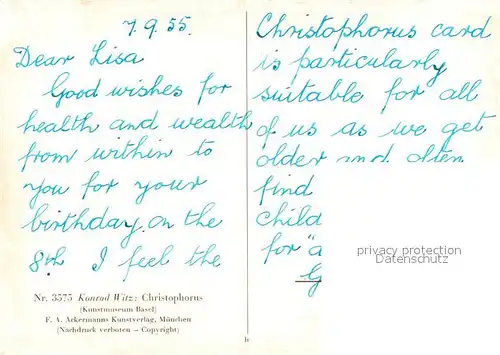 7.9.55.
Dear Lisa
Good wishes for
health and wealth
from within to
you for your
birthday on the
8th I feel the
Christophorus card
is particularly
suitable for all
of us as we get
older and often
find
child
for "a
privacy protection
Nr. 3575 Konrad Witz: Christophorus
(Kunstmuseum Basel)
F. A. Ackermanns Kunstverlag, München
(Nachdruck verboten – Copyright)